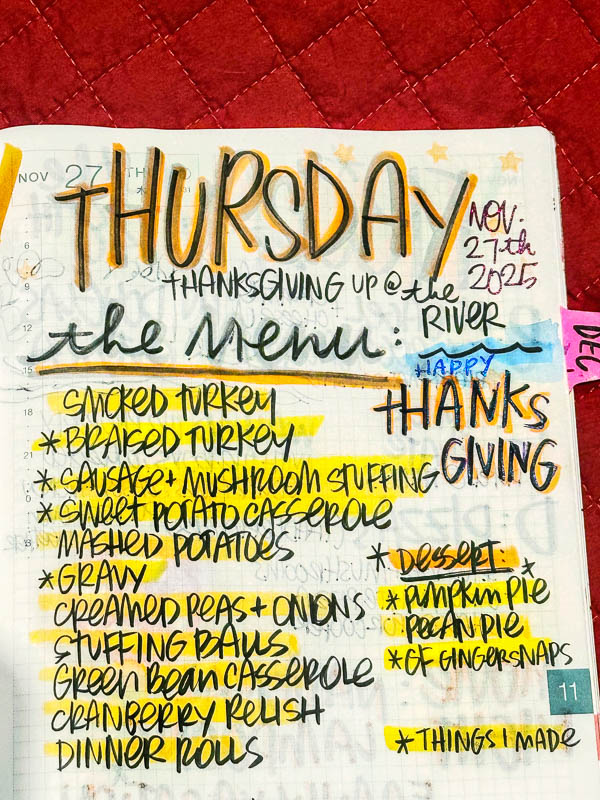 NOV 27
THURSDAY
NOV.
27th
2025
THANKSGIVING UP @ the
RIVER
the Menu:
HAPPY
THANKS
GIVING
DEC.
SMOKED TURKEY
* BRAISED TURKEY
* SAUSAGE + MUSHROOM STUFFING
* SWEET POTATO CASSEROLE
MASHED POTATOES
* GRAVY
CREAMED PEAS + ONIONS
STUFFING BALLS
GREEN BEAN CASSEROLE
CRANBERRY RELISH
DINNER ROLLS
* DESSERT: *
* PUMPKIN PIE
PECAN PIE
* GF GINGERSNAPS
11
* THINGS I MADE
6
9
12
15
18
21
0
3